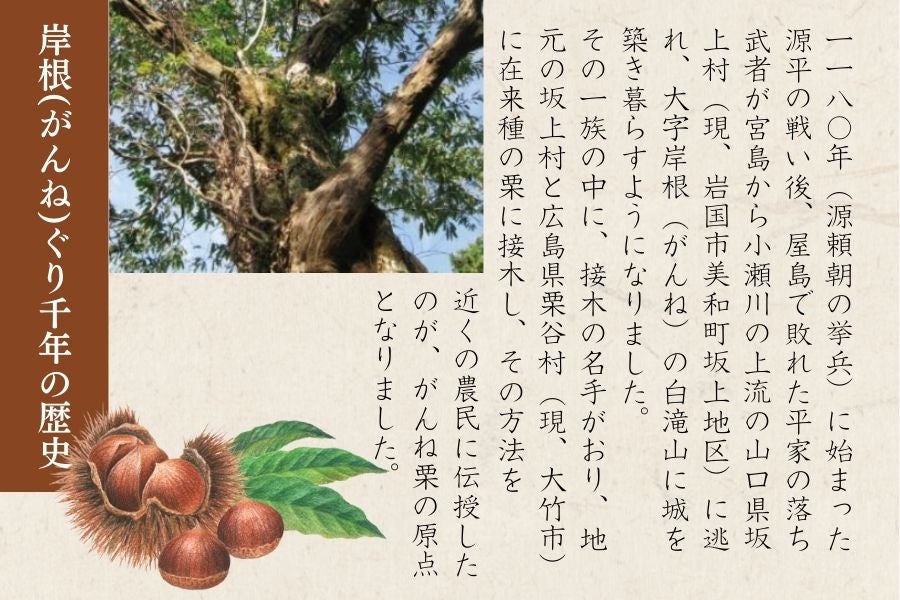 岸根(がんね)ぐり千年の歴史
一一八〇年（源頼朝の挙兵）に始まった
源平の戦い後、屋島で敗れた平家の落ち
武者が宮島から小瀬川の上流の山口県坂
上村（現、岩国市美和町坂上地区）に逃
れ、大字岸根（がんね）の白滝山に城を
築き暮らすようになりました。
その一族の中に、接木の名手がおり、地
元の坂上村と広島県栗谷村（現、大竹市）
に在来種の栗に接木し、その方法を
近くの農民に伝授した
のが、がんね栗の原点
となりました。